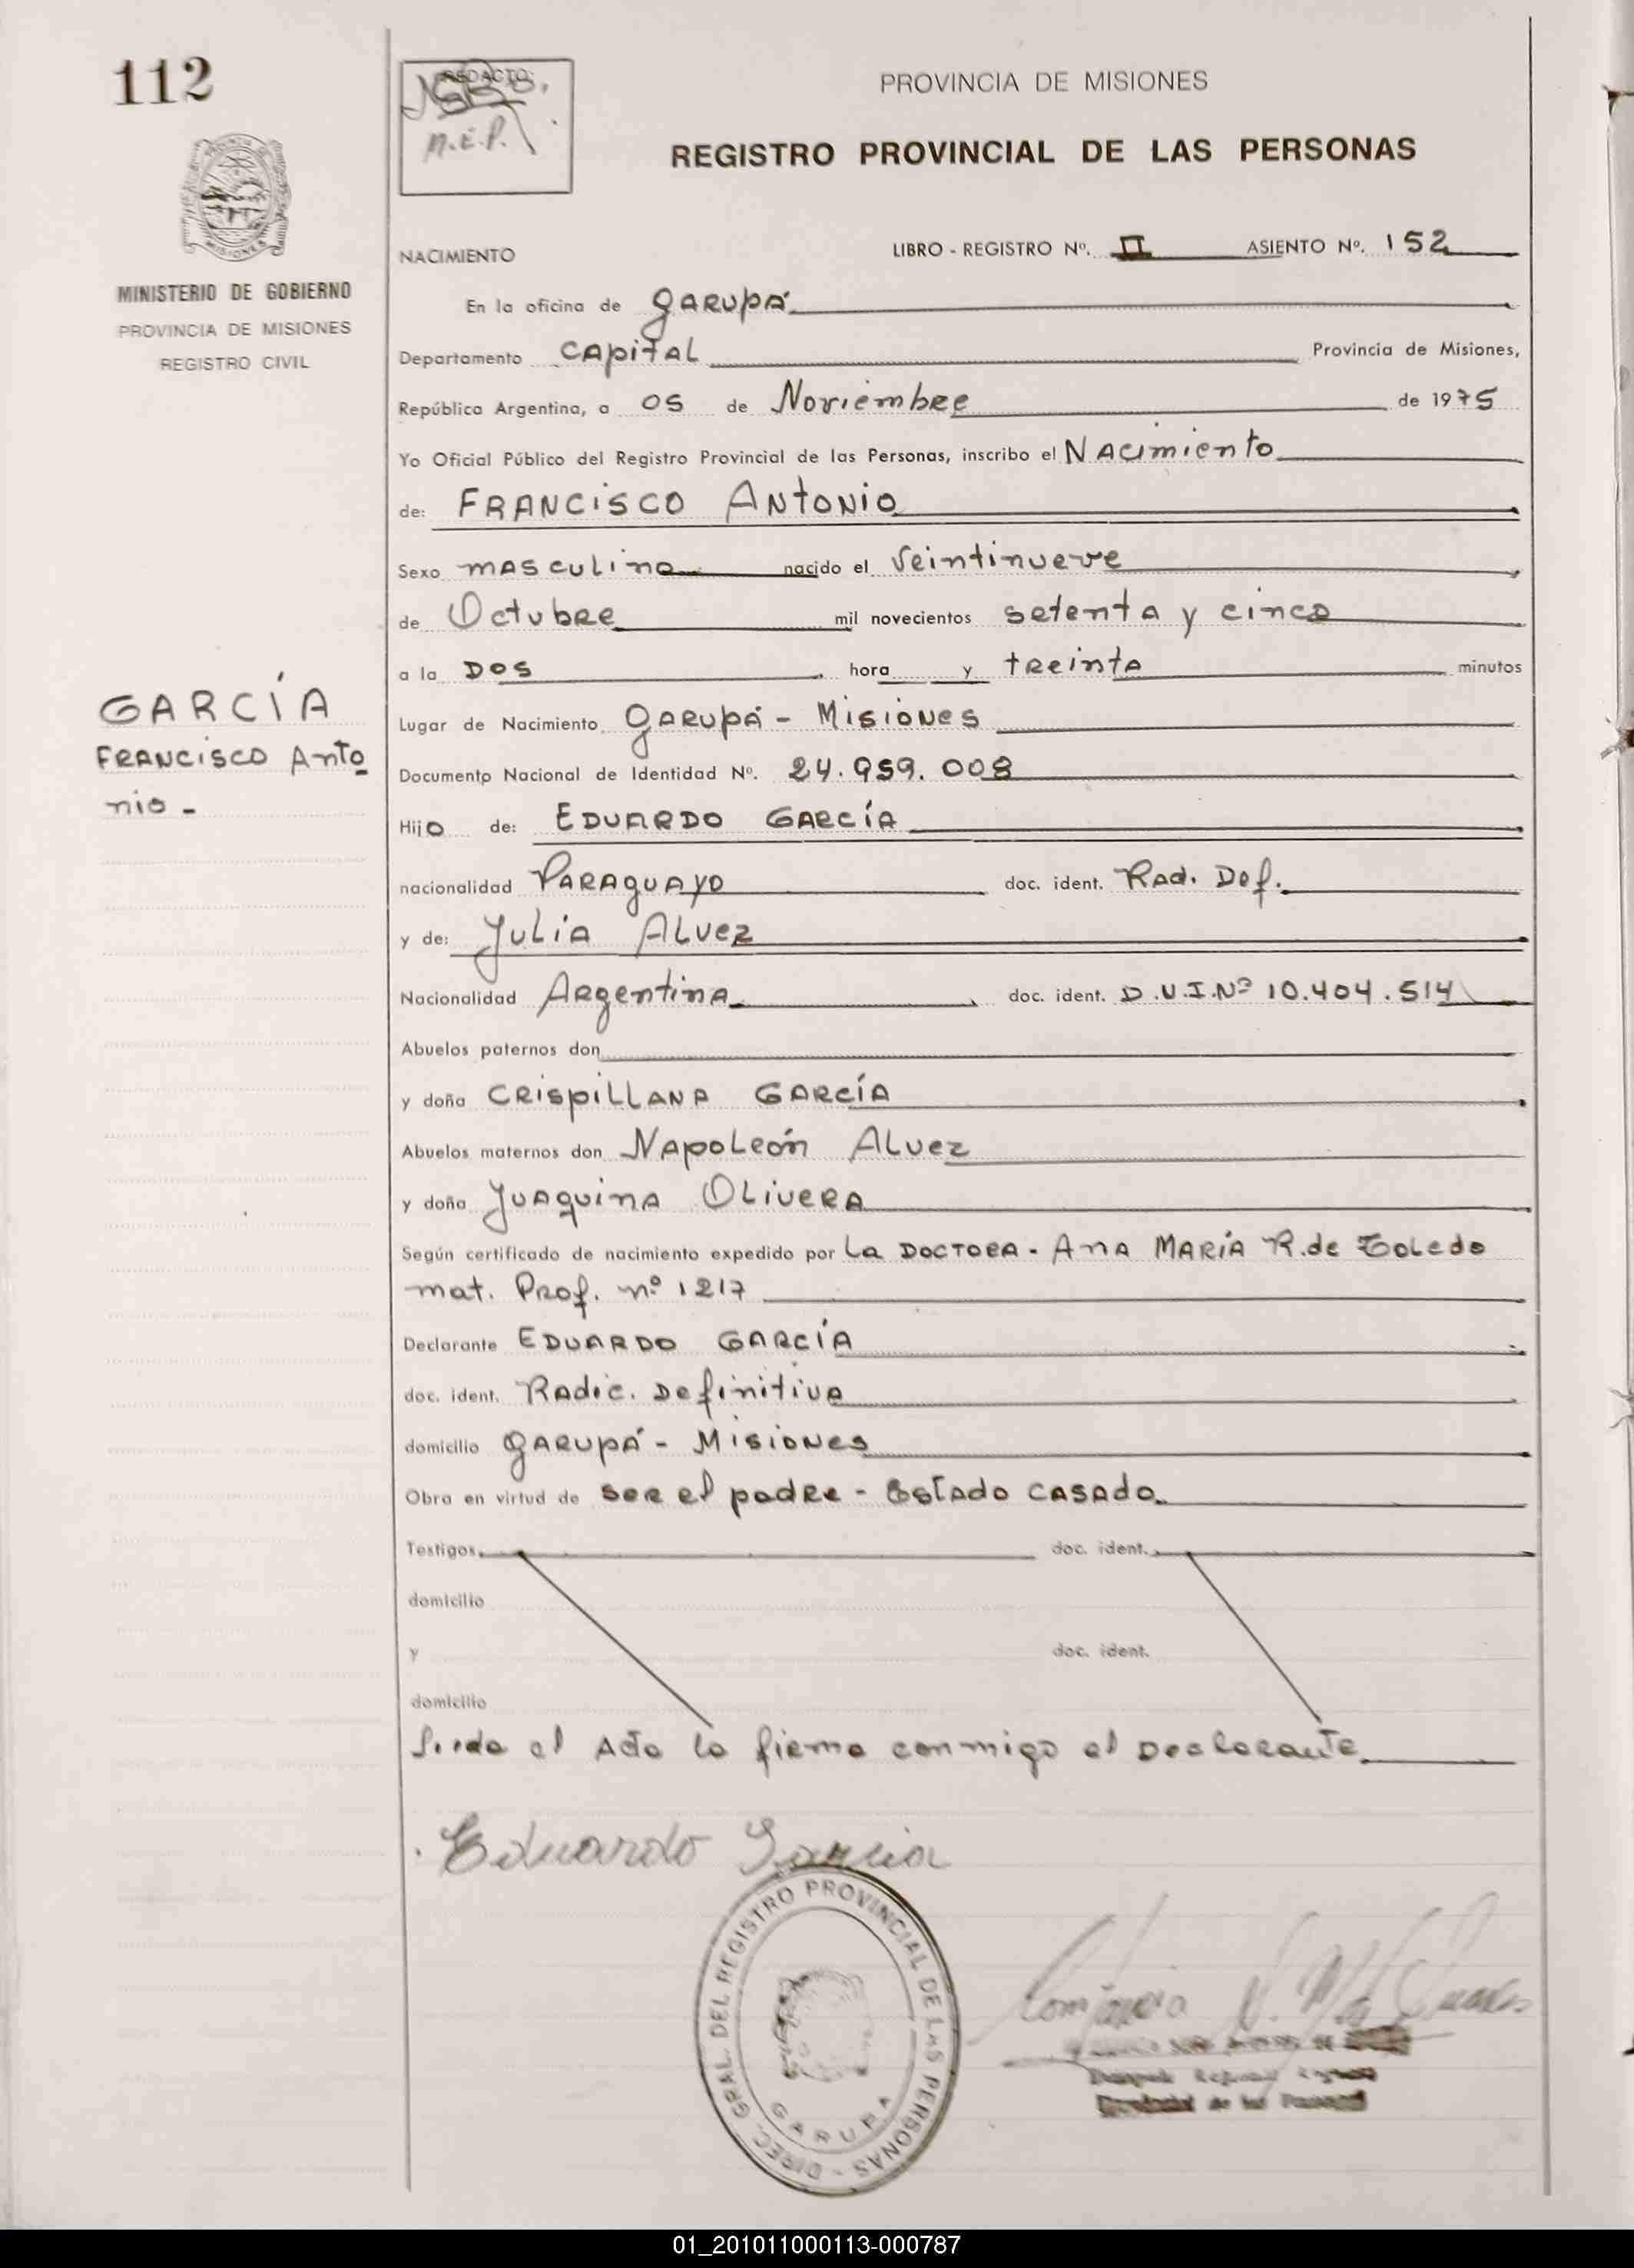 112
REDACTO:
N.E.P.
PROVINCIA DE MISIONES
REGISTRO PROVINCIAL DE LAS PERSONAS
MISIONES
MINISTERIO DE GOBIERNO
PROVINCIA DE MISIONES
REGISTRO CIVIL
NACIMIENTO LIBRO - REGISTRO Nº. II ASIENTO Nº. 152
En la oficina de GARUPÁ
Departamento CAPITAL Provincia de Misiones,
República Argentina, a 05 de Noviembre de 1975
Yo Oficial Público del Registro Provincial de las Personas, inscribo el NACIMIENTO
de: FRANCISCO ANTONIO
Sexo masculino nacido el Veintinueve
de Octubre mil novecientos setenta y cinco
a la DOS hora y treinta minutos
GARCÍA
FRANCISCO Anto
nio -
Lugar de Nacimiento GARUPÁ - MISIONES
Documento Nacional de Identidad Nº. 24.959.008
Hijo de: EDUARDO GARCÍA
nacionalidad PARAGUAYO doc. ident. Rad. Def.
y de: Julia ALVEZ
Nacionalidad Argentina doc. ident. D.U.I.Nº 10.404.514
Abuelos paternos don
y doña CRISPILLANA GARCÍA
Abuelos maternos don Napoleón ALVEZ
y doña JUAQUINA OLIVERA
Según certificado de nacimiento expedido por La DOCTORA - ANA MARÍA R. de Toledo
mat. Prof. nº 1217
Declarante EDUARDO GARCÍA
doc. ident. Radic. Definitiva
domicilio GARUPÁ - MISIONES
Obra en virtud de ser el padre - Estado CASADO
Testigos doc. ident.
domicilio
y doc. ident.
domicilio
Leida el Acta la firma conmigo el Declarante
Eduardo Garcia
DIREC. GRAL. DEL REGISTRO PROVINCIAL DE LAS PERSONAS -
GARUPA
Provincial de las Personas
01_201011000113-000787